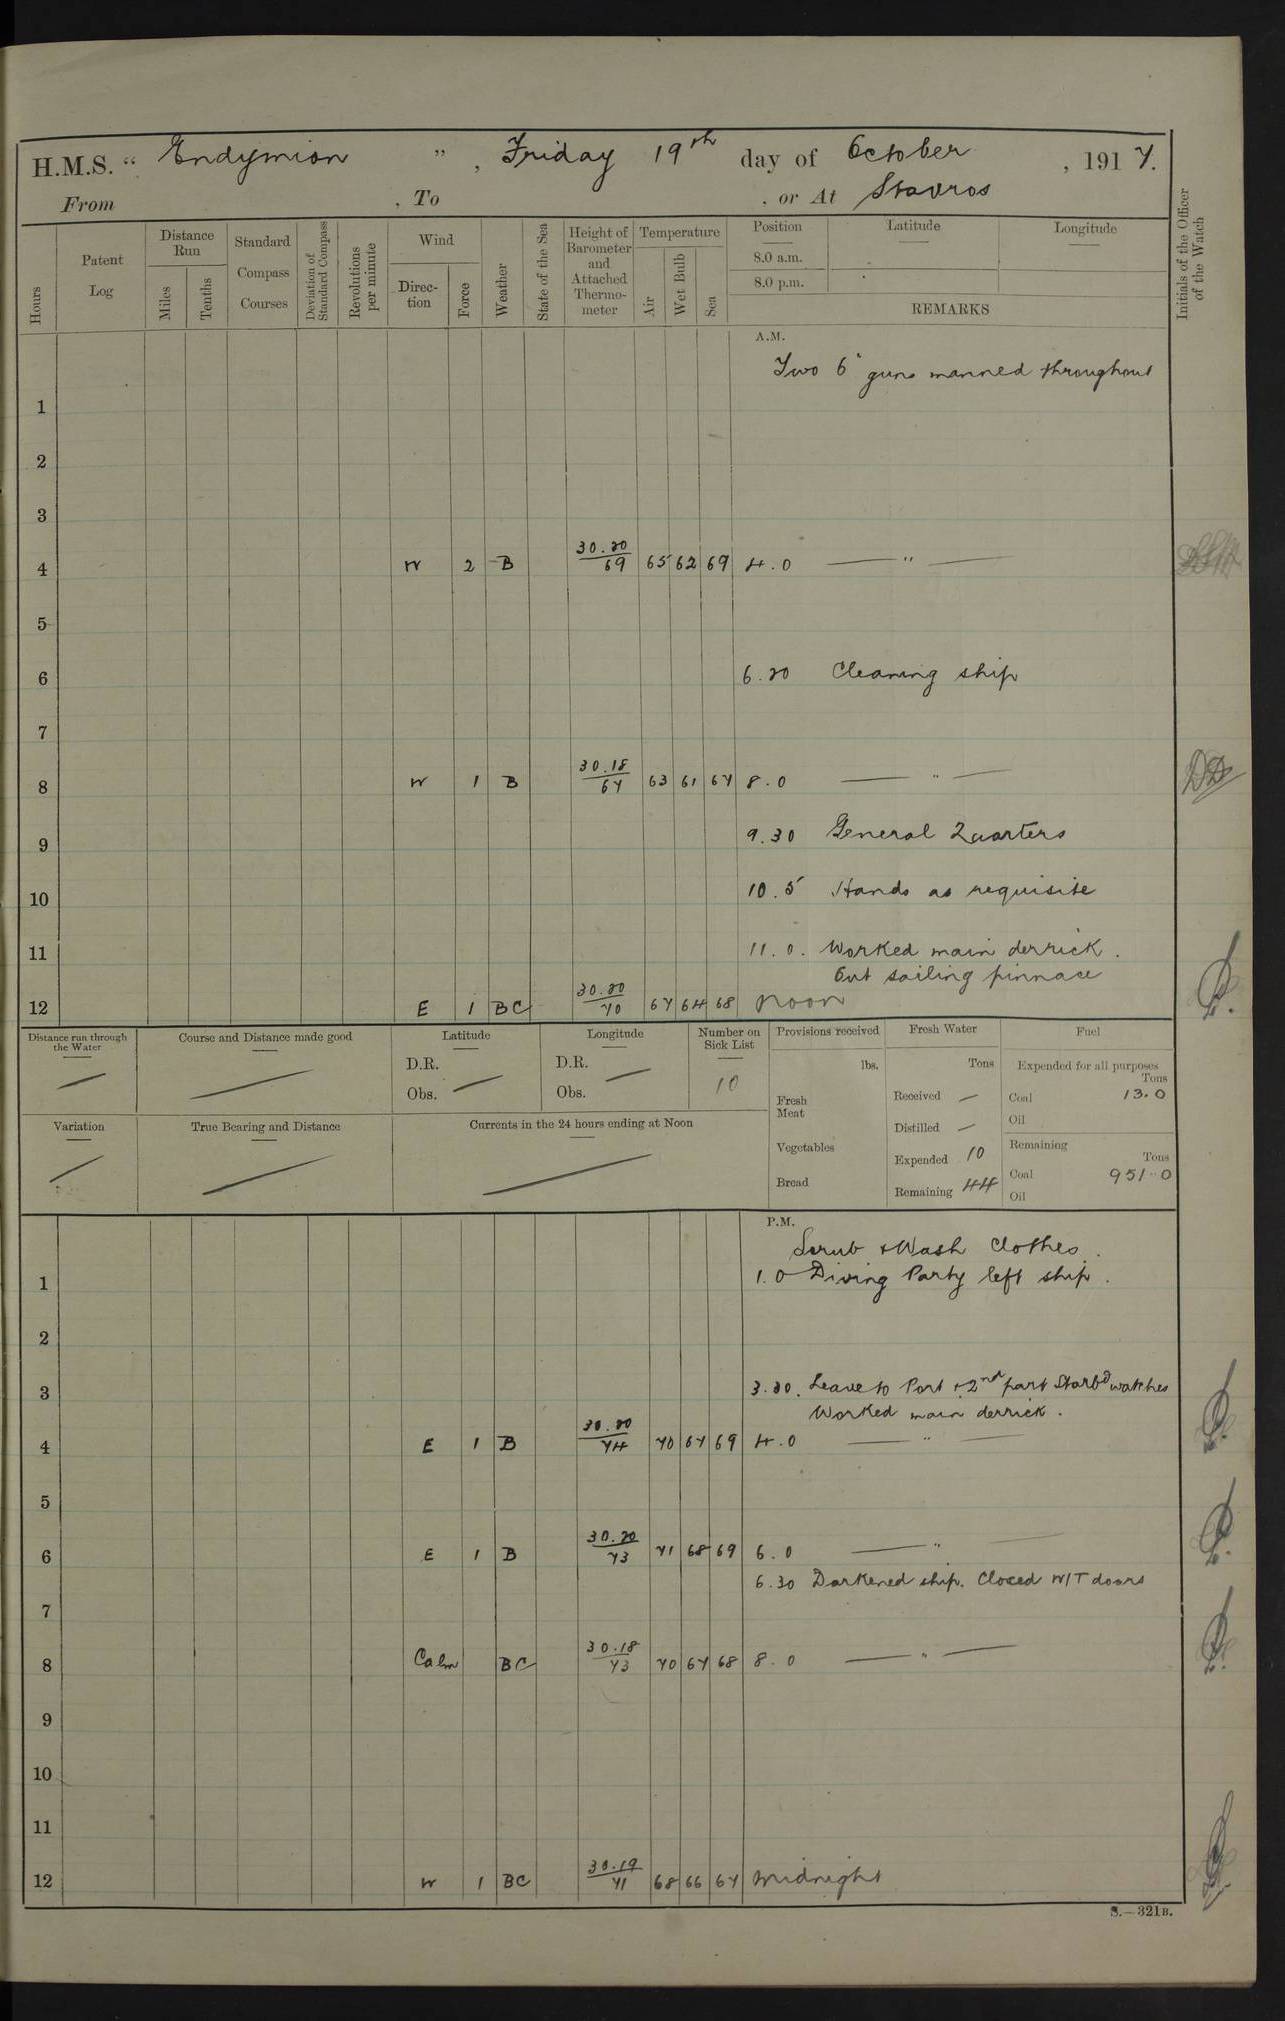 H.M.S. “ Endymion ” , Friday 19th day of October , 1917.
From , To , or At Stavros
Hours
Patent Log
Distance Run
Miles
Tenths
Standard Compass Courses
Deviation of Standard Compass
Revolutions per minute
Wind
Direction
Force
Weather
State of the Sea
Height of Barometer and Attached Thermometer
Temperature
Air
Wet Bulb
Sea
Position
8.0 a.m.
8.0 p.m.
Latitude
Longitude
REMARKS
Initials of the Officer of the Watch
A.M.
Two 6" guns manned throughout
1
2
3
4 W 2 B 30.20/69 65 62 69 4.0 — " —
5
6 6.20 Cleaning ship
7
8 W 1 B 30.18/67 63 61 67 8.0 — " —
9 9.30 General Quarters
10 10.5 Hands as requisite
11 11.0. Worked main derrick.
Out sailing pinnace
12 E 1 BC 30.20/70 67 64 68 Noon
Distance run through the Water
Course and Distance made good
Latitude
D.R.
Obs.
Longitude
D.R.
Obs.
Number on Sick List
10
Provisions received
lbs.
Fresh Meat
Vegetables
Bread
Fresh Water
Tons
Received —
Distilled —
Expended 10
Remaining 44
Fuel
Expended for all purposes
Tons
Coal 13.0
Oil
Remaining
Tons
Coal 951.0
Oil
Variation
True Bearing and Distance
Currents in the 24 hours ending at Noon
P.M.
Scrub & Wash Clothes.
1 1.0 Diving Party left ship.
2
3 3.20. Leave to Port & 2nd part Starbd watches
Worked main derrick.
4 E 1 B 30.20/74 70 67 69 4.0 — " —
5
6 E 1 B 30.20/73 71 68 69 6.0 — " —
6.30 Darkened ship. Closed W/T doors
7
8 Calm BC 30.18/73 70 67 68 8.0 — " —
9
10
11
12 W 1 BC 30.19/71 68 66 67 Midnight
S.—321B.